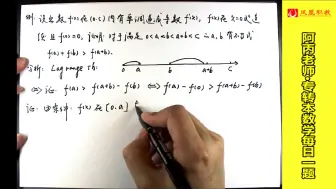 例: 设函数 f(x)在(0.c)内有单调递减导数 f'(x), f(x)在 x=0处连
续 且 f(0)=0, 证明: 对于满足 0<a<b<a+b<c 的 a, b 有不等式
f(a)+f(b)>f(a+b).
分析: Lagrange 中.
o a b a+b c
⇔ 证: f(a) > f(a+b)-f(b) ⇔ f(a)-f(0) > f(a+b)-f(b)
证: 由条件: f(x) 在 [0.a]
凤凰职教
阿两老师·专转本数学每日一题